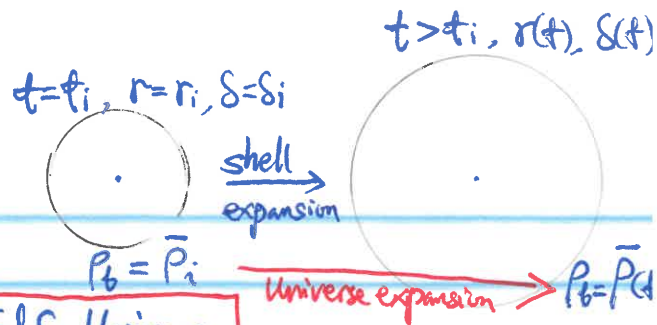 t=tᵢ, r=rᵢ, δ=δᵢ
t>tᵢ, r(t), δ(t)
shell
expansion
ρ_b = ρ̄ᵢ
Universe expansion
ρ_b=ρ̄(t